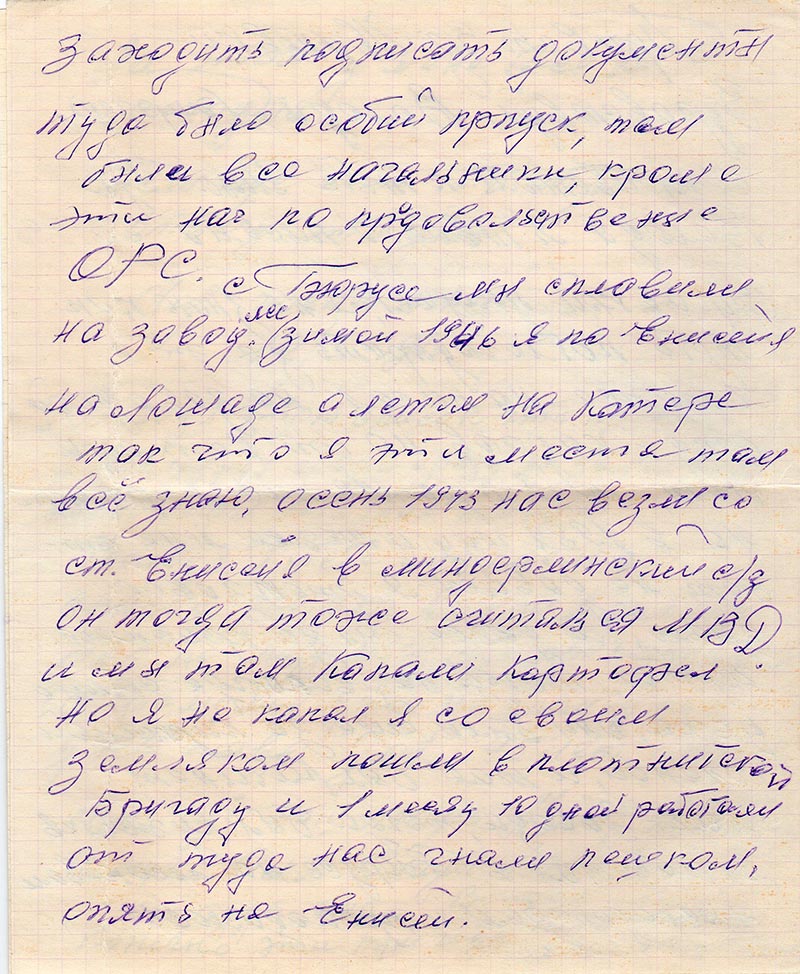 заходить подписать документы
туда было особий прпуск, там
были все начальники, кроме
эти нач по продовольствение
ОРС. с Тюрусе мы сплавили
на завод. лес, зимой 1946 я по Енисейя
на Лошаде а летом на Катере
так что я эти места там
всё знаю, осень 1943 нас везли со
ст. Енисейя в миндерлинский с/з
он тогда тоже считался МВД
и мы там Капали Картофел.
но я не капал я со своим
земляком пошли в плотнитской
Бригаду и 1 месяц 10 дней работали
от туда нас гнали пешком,
опять на Енисей.